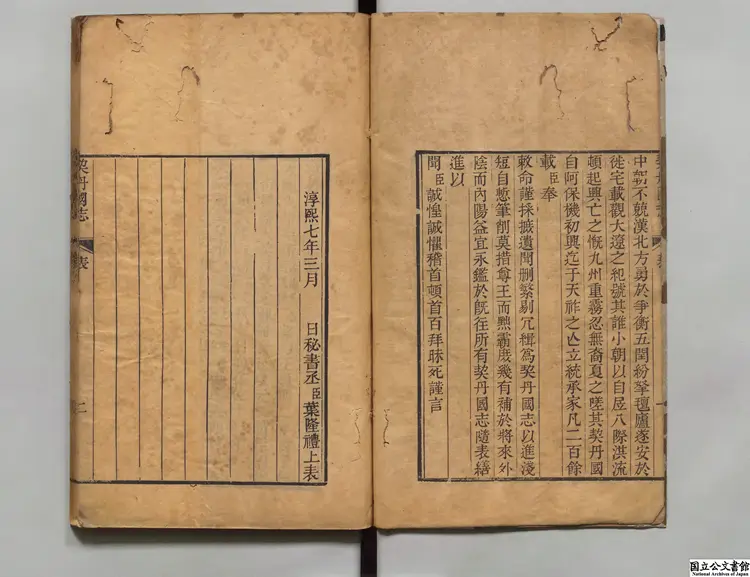 中朝不競漢北方勇於爭衡五閏紛拏氊廬遂安於
徙宅載觀大遼之紀號其誰小朝以自居八際洪流
頓起興亡之慨九州重霧忍無裔夏之嗟其契丹國
自阿保機初興迄于天祚之亾立統承家凡二百餘
載臣奉
敕命謹採摭遺聞刪繁剔冗緝為契丹國志以進淺
短自慙筆削莫措尊王而黜霸庶幾有補於將來外
陰而內陽益宜永鑑於既往所有契丹國志隨表繕
進以
聞臣誠惶誠懼稽首頓首百拜昧死謹言
淳熙七年三月 日秘書丞臣葉隆禮上表
契丹國志 表 二
国立公文書館
National Archives of Japan